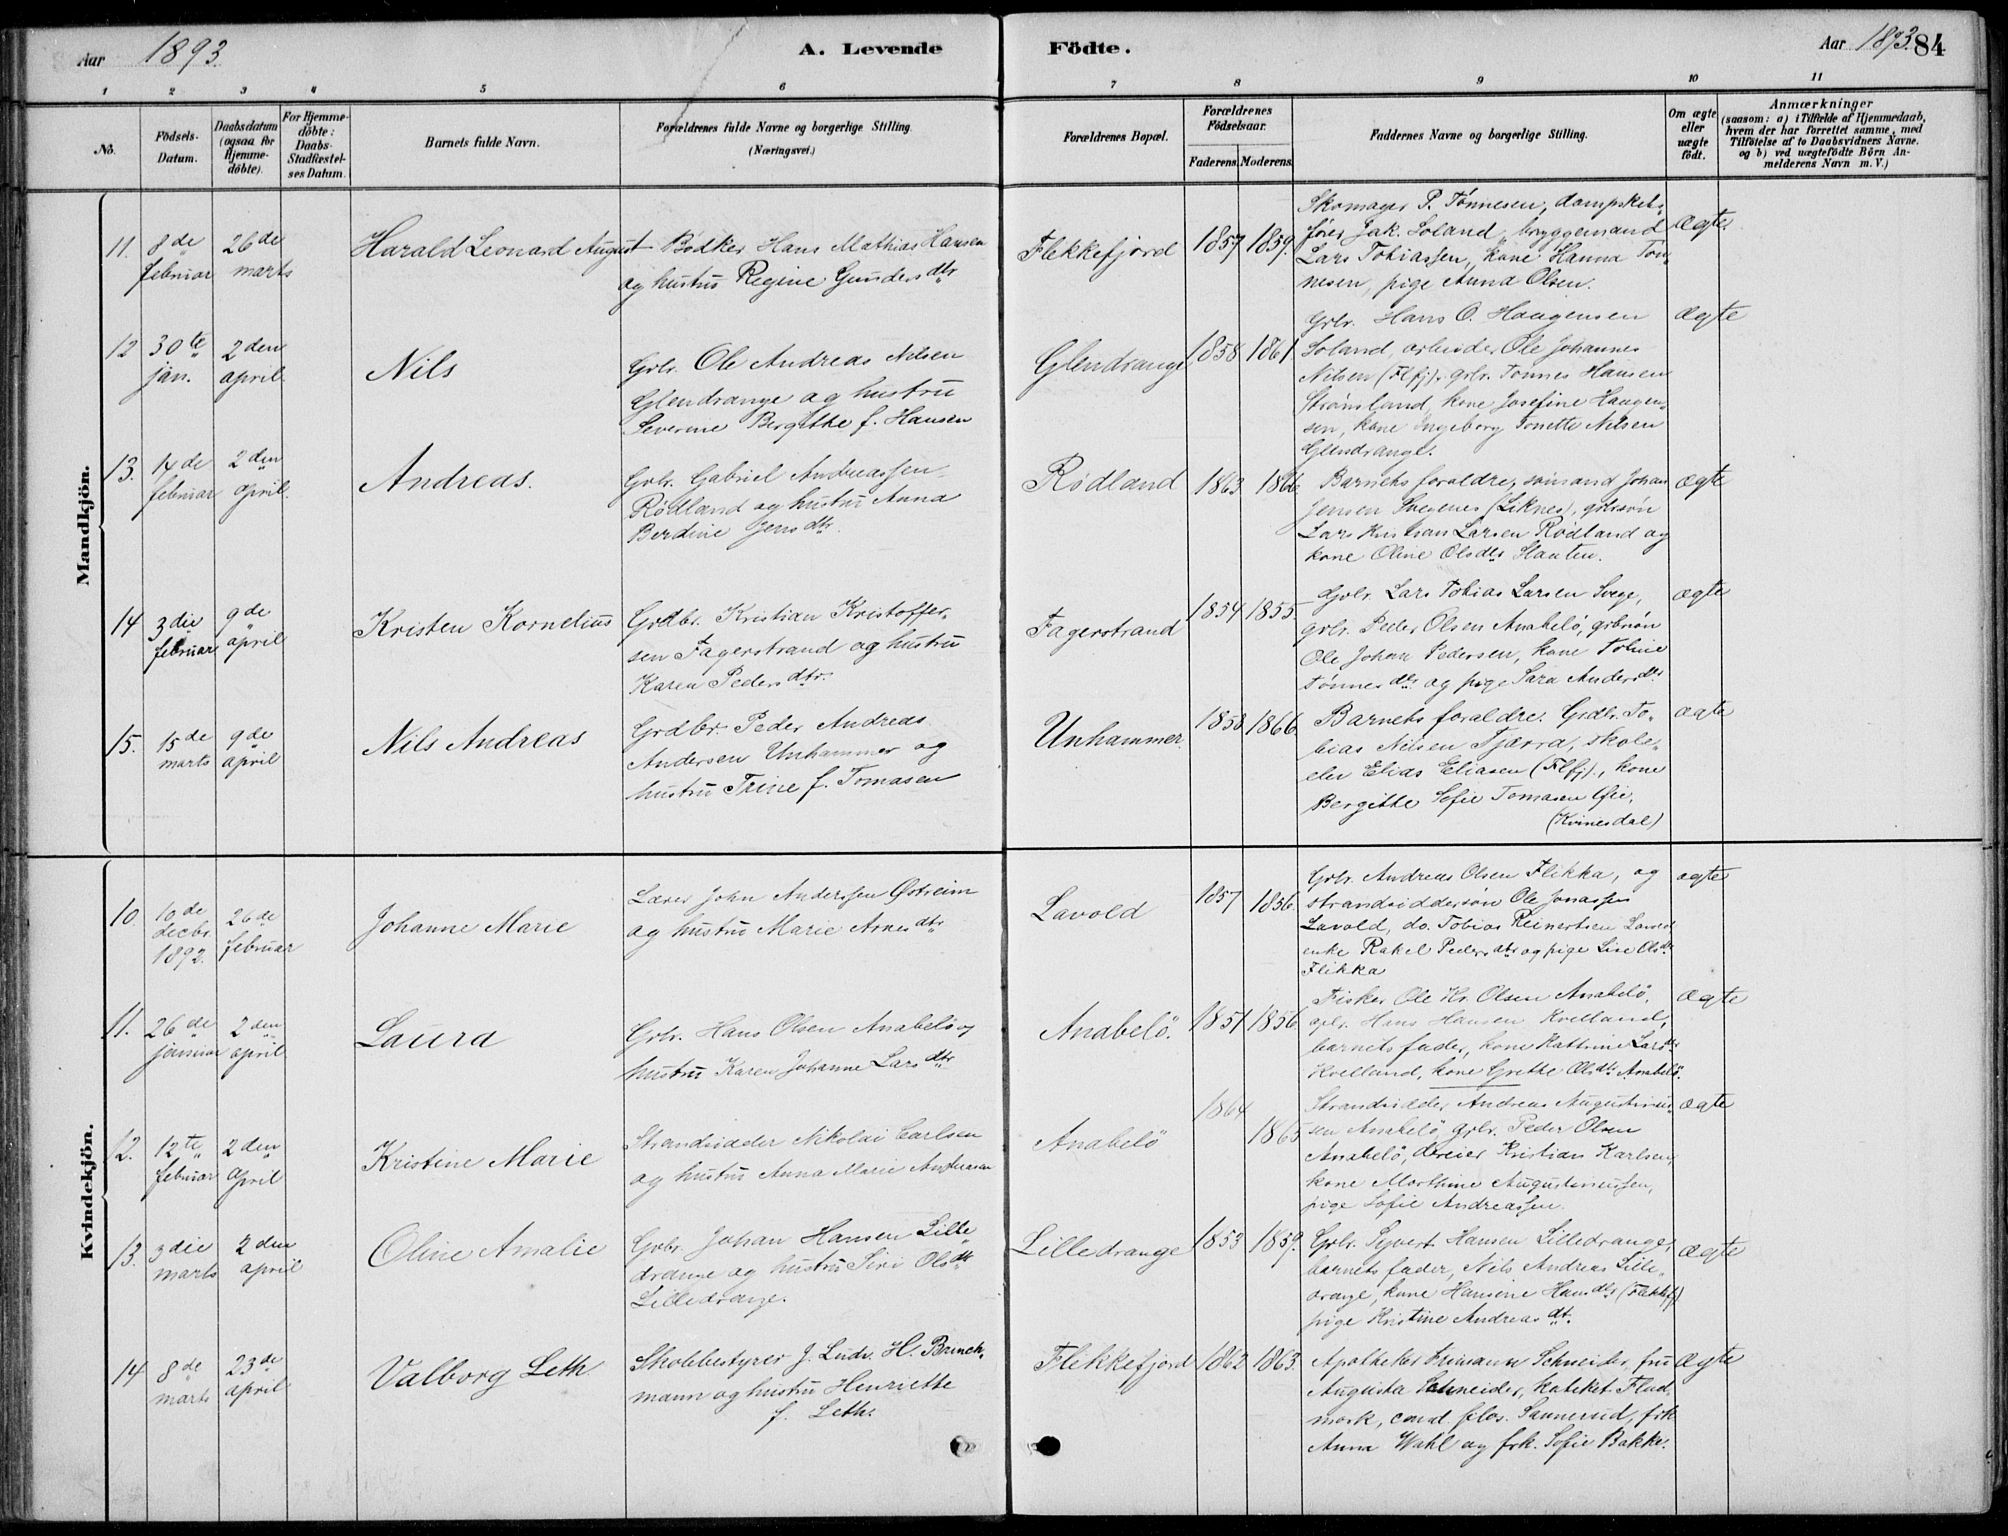 Aar 1893. A. Levende Födte. Aar 1893. 84
1 2 3 4 5 6 7 8 9 10 11
No.
Födsels-Datum.
Daabsdatum (ogsaa for Hjemmedöbte).
For Hjemmedöbte: Daabs-Stadfæstelses Datum.
Barnets fulde Navn.
Forældrenes fulde Navne og borgerlige Stilling. (Næringsvei.)
Forældrenes Bopæl.
Forældrenes Födselsaar.
Faderens. Moderens.
Faddernes Navne og borgerlige Stilling.
Om ægte eller uægte födt.
Anmærkninger
(saasom: a) i Tilfælde af Hjemmedaab, hvem der har forrettet samme, med Tilföielse af to Daabsvidners Navne. og b) ved uægtefödte Börn Anmelderens Navn m. V.)
Mandkjön.
11. 8de februar 26de marts
Harald Leonard August
Bødker Hans Mathias Hansen
og hustru Regine Gundersdtr
Flekkefjord 1857 1859.
Skomager P. Tønnesen, dampskibs-
fører Jak. Loland, bryggemand
Lars Tobiassen, kone Hanna Tøn-
nesen, pige Anna Olsen.
ægte
12 30te jan. 2den april.
Nils
Grbr. Ole Andreas Nilsen
Glendrange og hustru
Severine Bergitte f. Hansen
Glendrange 1858 1861.
Grbr. Hans O. Haagensen
Loland, arbeider Ole Johannes
Nilsen (Flfj), grbr. Tønnes Hansen
Strømsland, kone Josefine Haagen-
sen, kone Ingeborg Tonette Nilsen
Glendrange.
ægte
13. 14de februar 2den april.
Andreas.
Grbr. Gabriel Andreassen
Rødland og hustru Anna
Berdine Jensdtr.
Rødland 1863 1866.
Barnets forældre, sømand Johan
Jensen Svegenes (Liknes), grbrsøn
Lars Kristian Larsen Rødland og
kone Oline Olsdtr Slauten.
ægte
14 3die februar 9de april
Kristen Kornelius
Grdbr. Kristian Kristoffer-
sen Fagerstrand og hustru
Karen Pedersdtr.
Fagerstrand 1854 1855.
Grbr. Lars Tobias Larsen Svege,
grbr. Peder Olsen Anabelø, grbrsøn
Ole Johan Pedersen, kone Tobine
Tønnesdtr og pige Sara Andersdtr
ægte
15. 15de marts 9de april
Nils Andreas
Grdbr. Peder Andreas
Andersen Unhammer og
hustru Trine f. Tomasen
Unhammer. 1858 1866.
Barnets forældre. Grdbr. To-
bias Nilsen Tjørra, skole-
elev Elias Eliasen (Flfj)., kone
Bergitte Sofie Tomasen Øie,
(Kvinesdal)
ægte
Kvindekjön.
10. 10de decbr. 1892. 26de februar
Johanne Marie
Lærer John Anderssen Østreim
og hustru Marie Arnesdtr
Lavold 1857 1856.
Grbr. Andreas Olsen Flikka, og
strandsiddersøn Ole Jonassen
Lavold, do. Tobias Reinertsen
enke Rakel Pedersdtr og pige Lise Olsdtr
Flikka
ægte
11. 26de januar 2den april
Laura
Grbr. Hans Olsen Anabelø og
hustru Karen Johanne Larsdtr
Anabelø. 1851 1856
Fisker Ole Kr. Olsen Anabelø,
grbr. Hans Hansen Kvelland,
barnets fader, kone Kathrine Larsdtr
Kvelland, kone Grethe Olsdtr Anabelø.
ægte
12. 12te februar 2den april
Kristine Marie
Strandsidder Nikolai Carlsen
og hustru Anna Marie Andreasen
Anabelø 1864 1865
Strandsidder Andreas Augustinus-
sen Anabelø, grbr. Peder Olsen
Anabelø, dreier Kristian Karlsen,
kone Marthine Augustinussen,
pige Sofie Andreassen.
ægte
13. 3die marts 2den april
Oline Amalie
Grbr. Johan Hansen Lille-
drange og hustru Siri Olsdtr
Lilledrange.
Lilledrange 1853 1859.
Grbr. Syvert Hansen Lilledrange,
barnets fader, Nils Andreas Lille-
drange, kone Hansine Hansdtr (Flekkef)
pige Kristine Andreasdtr.
ægte
14 8de marts 23de april
Valborg Leth.
Skolebestyrer J. Ludv. H. Brinch-
mann og hustru Henriette
f. Leth.
Flekkefjord 1862 1863.
Apotheker Schneider, fru
Augusta Schneider, kateket Flod-
mark, cand. filos. Sannerud, frk.
Anna Wahl og frk. Sofie Bakke.
ægte